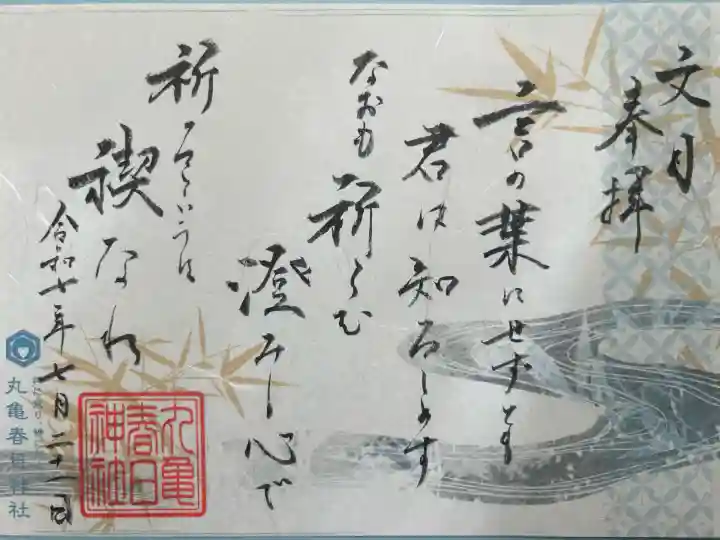 文月
奉拝
言の葉にせずとも
君は知ろしめす
なおも祈らむ
澄みし心で
祈るというは
禊なれ
令和七年七月二十一日
丸亀春日神社
丸亀春日神社